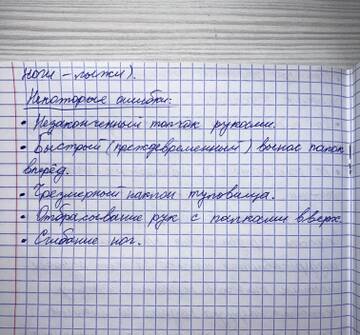 ноги - лыжи).
Некоторые ошибки:
• Незаконченный толчок руками.
• Быстрый (преждевременный) вынос палок
вперёд.
• Чрезмерный наклон туловища.
• Отбрасывание рук с палками вверх.
• Сгибание ног.